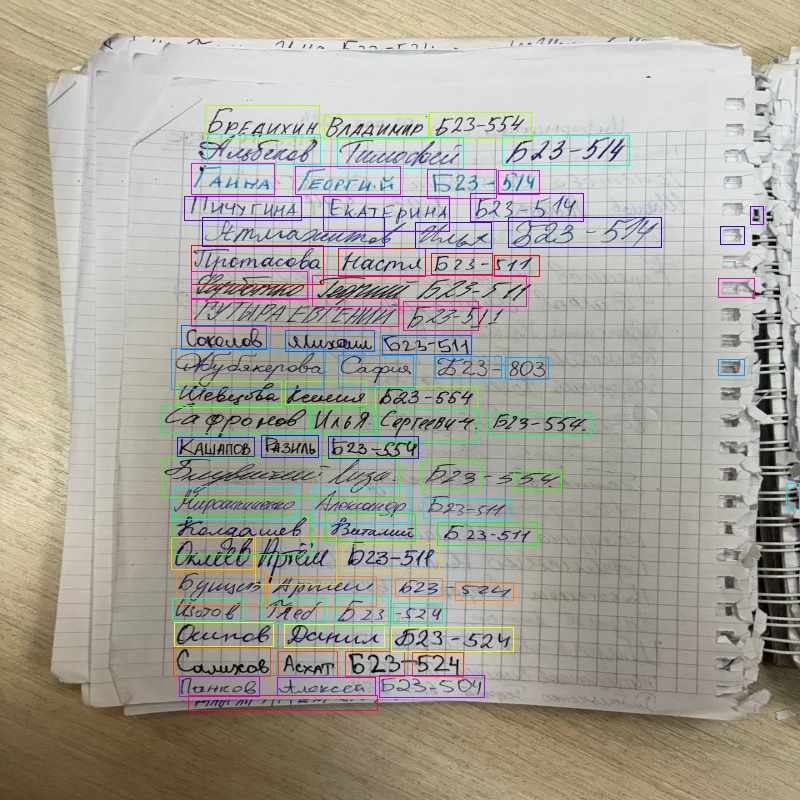 Бредихин Владимир Б23-554
Альбеков Тимофей Б23-514
Ганна Георгий Б23-514
Пичугина Екатерина Б23-514
Б23-514
Протасова Настя Б23-511
Георгий Б23-511
Путыра Евгений Б23-511
Соколов Михаил Б23-511
Абубякерова Сафия Б23-803
Шевцова Ксения Б23-554
Сафронов Илья Сергеевич Б23-554
Кашапов Разиль Б23-554
Лиза Б23-554
Мирошниченко Александр Б23-511
Колдашев Виталий Б23-511
Оклеев Артём Б23-511
Артем Б23-524
Изотов Глеб Б23-524
Осипов Данил Б23-524
Салихов Асхат Б23-524
Панков Алексей Б23-504